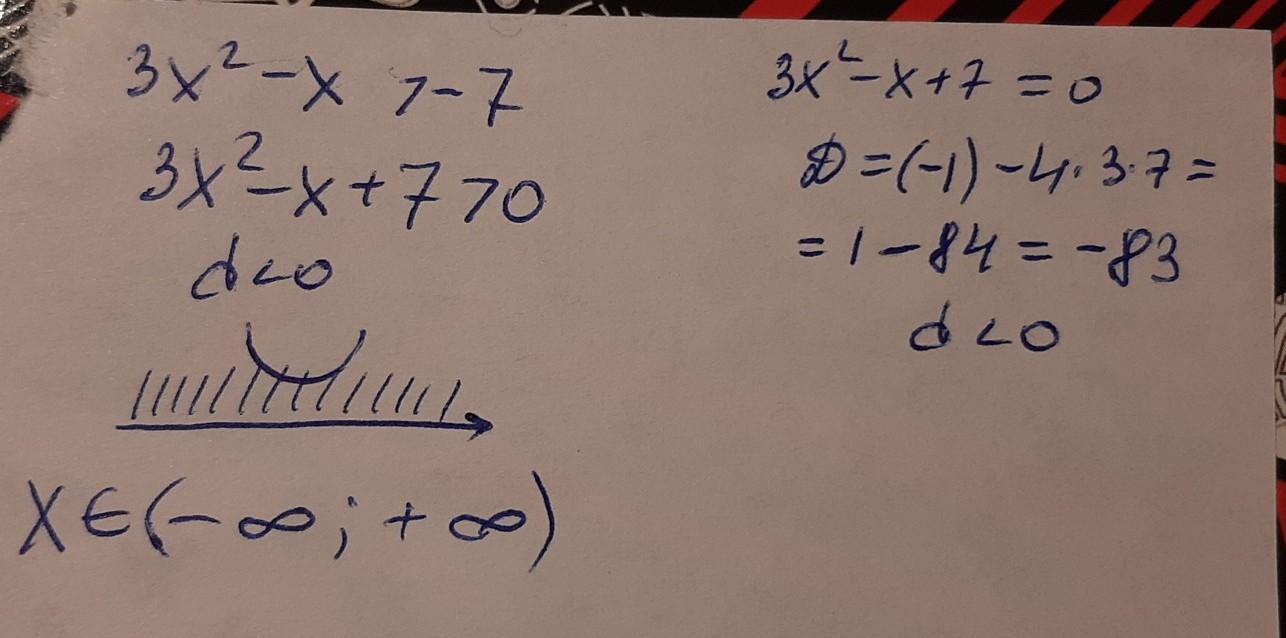 3x² - x > -7
3x² - x + 7 > 0
d < 0
x ∈ (-∞; +∞)
3x² - x + 7 = 0
D = (-1) - 4 · 3 · 7 =
= 1 - 84 = -83
d < 0